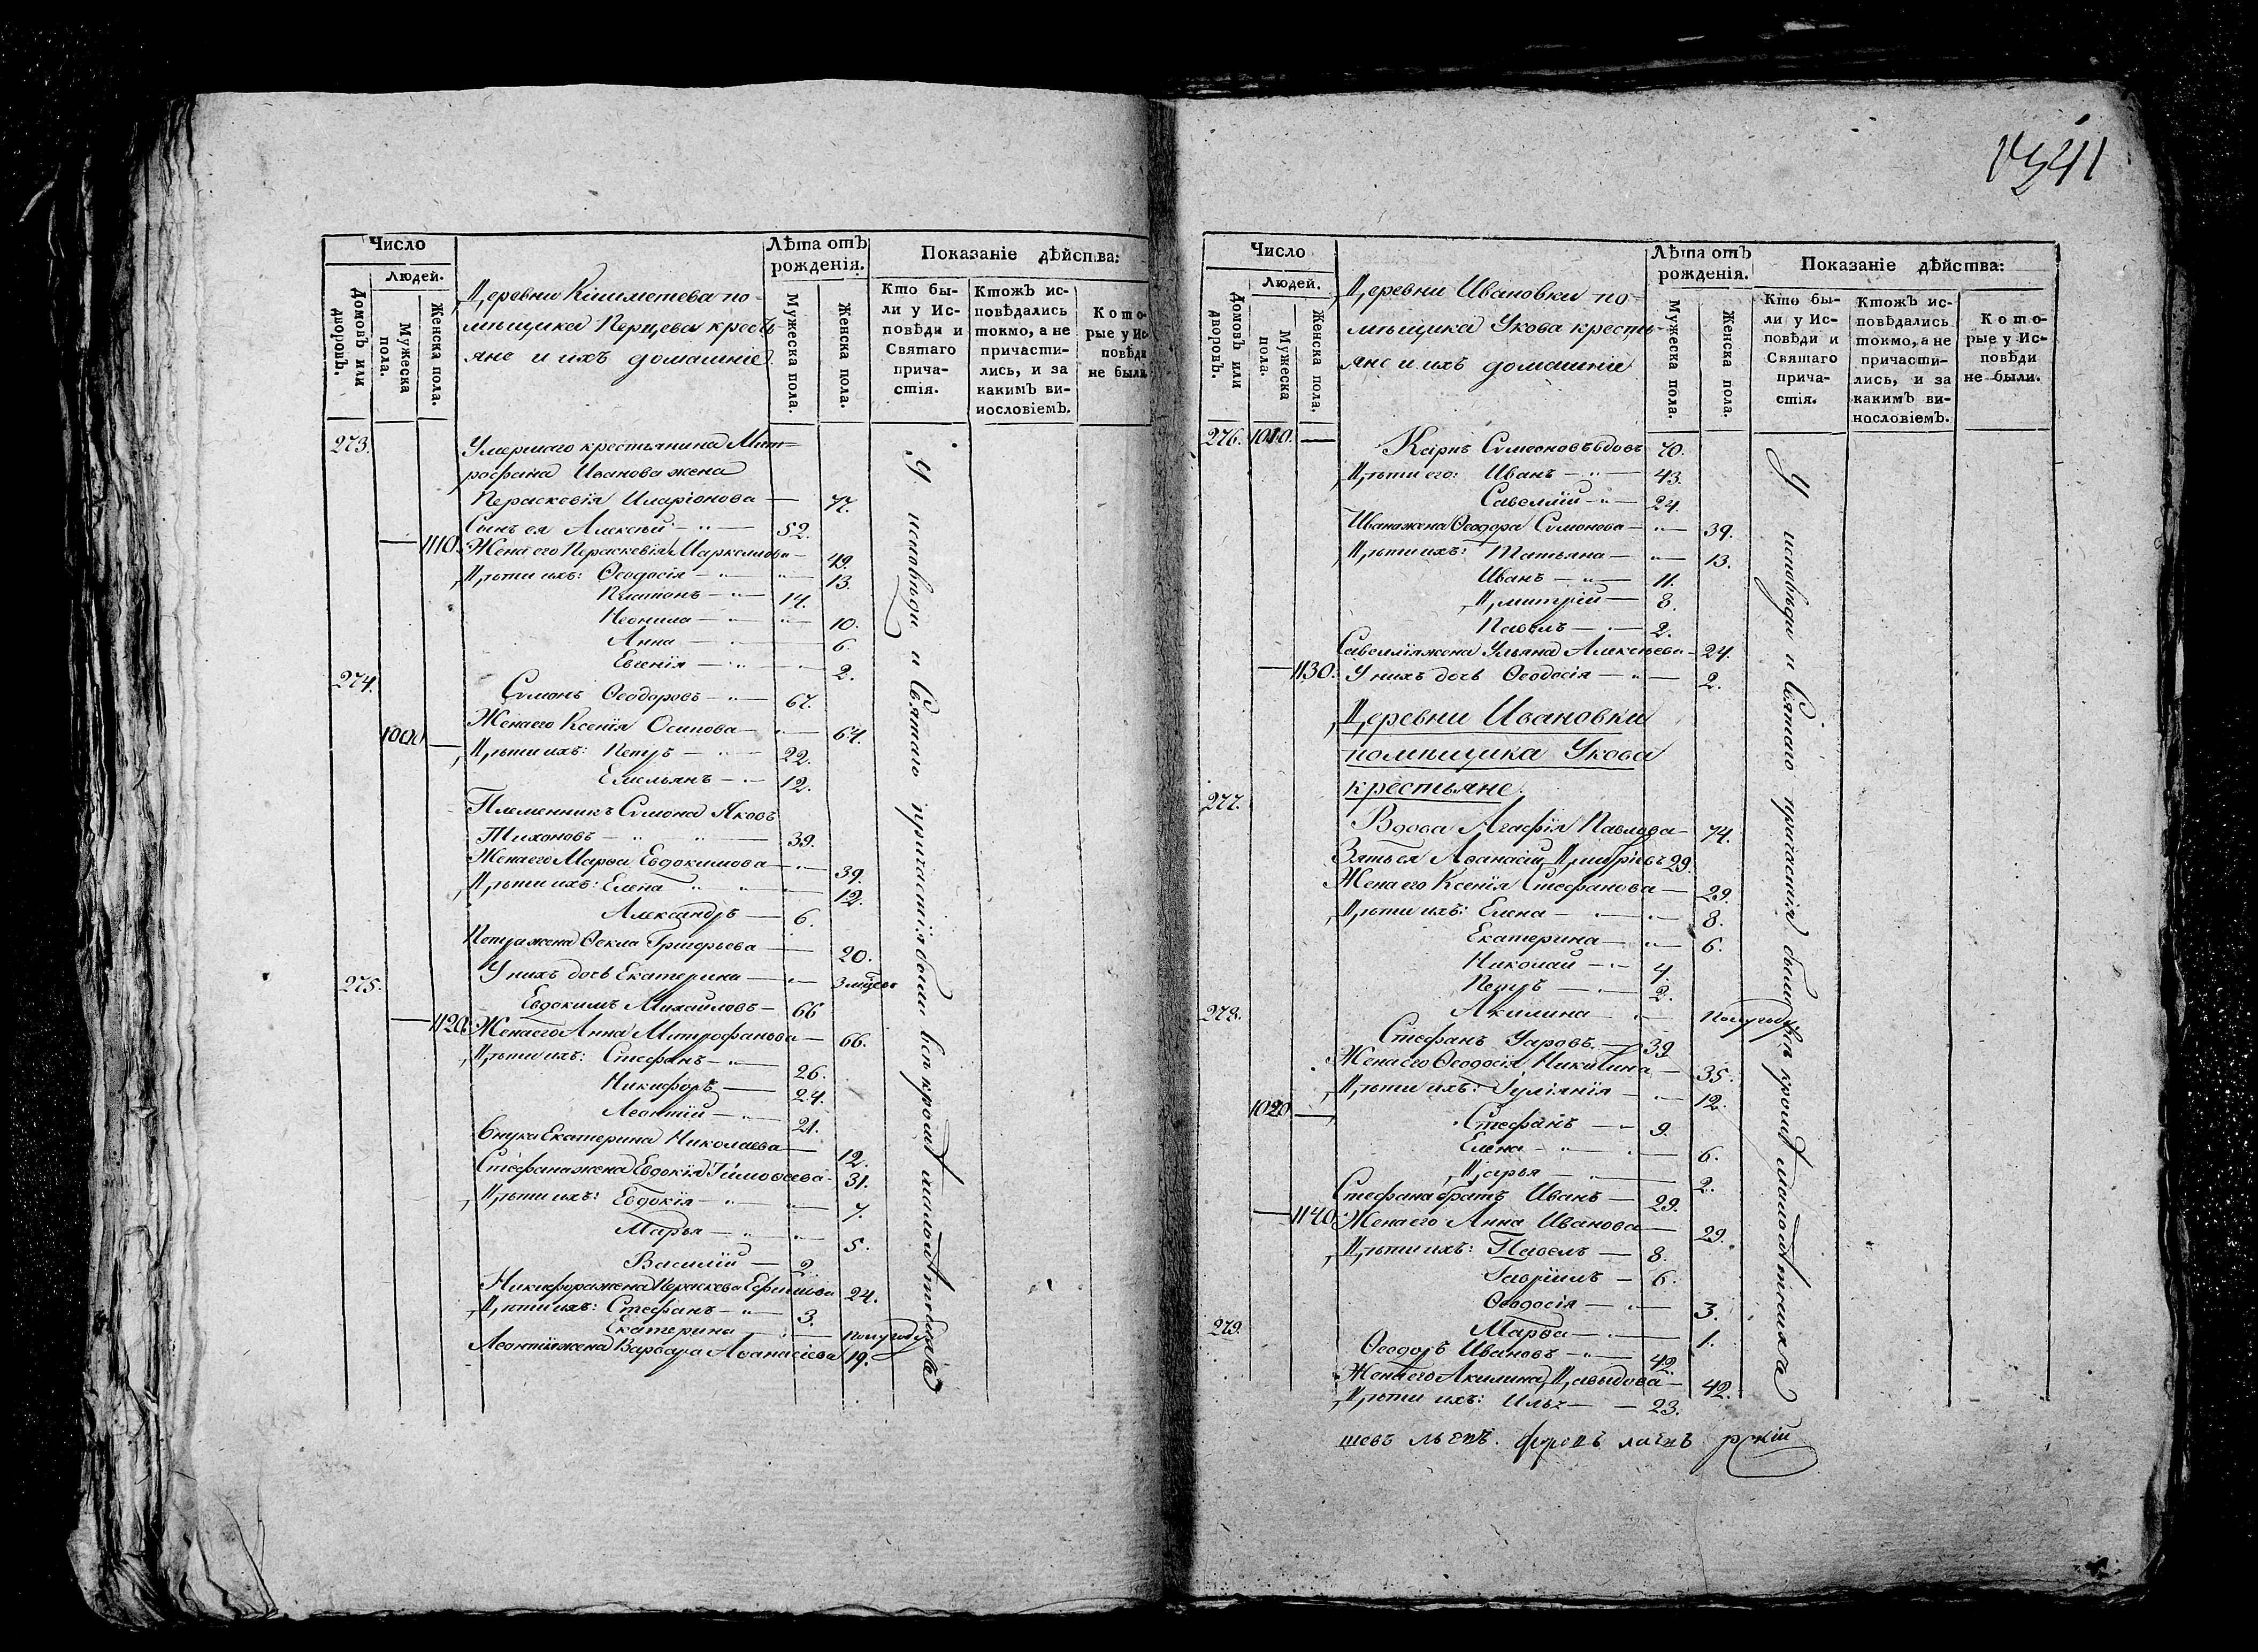 1341
Число
Людей.
Домовъ или дворовъ.
Мужеска пола.
Женска пола.
Деревни Кишметева по-
мѣщика Перцева кресть
яне и ихъ домашніе
Лѣта отъ рожденія.
Мужеска пола.
Женска пола.
Показаніе дѣйства:
Кто бы-
ли у Ис-
повѣди и
Святаго
прича-
стія.
Ктожъ ис-
повѣдались
токмо, а не
причасти-
лись, и за
какимъ ви-
нословіемъ.
Кото-
рые у Ис-
повѣди
не были.
273. Умершаго крестьянина Мит-
рофана Иванова жена
Параскевія Иларіонова — 77.
Сынъ ея Алексѣй — 52.
— 1110. Жена его Параскевія Маркелова — 49.
Дѣти ихъ: Ѳеодосія — 13.
Платонъ — 14.
Неонила — 10.
Анна — 6.
Евгенія — 2.
274. Сѵмонъ Ѳеодоровъ — 67.
Жена его Ксенія Осипова — 64.
1000 — Дѣти ихъ: Петръ — 22.
Емельянъ — 12.
Племенникъ Сѵмона Яковъ
Тихоновъ — 39.
Жена его Марѳа Евдокимова — 39.
Дѣти ихъ: Елена — 12.
Александръ — 6.
Петра жена Ѳекла Григорьева — 20.
У нихъ дочь Екатерина — 3 мцевъ
275. Евдокимъ Михайловъ — 66
— 1120. Жена его Анна Митрофанова — 66.
Дѣти ихъ: Стефанъ — 26.
Никифоръ — 24.
Леонтій — 21.
Внука Екатерина Николаева — 12.
Стефана жена Евдокія Тимоѳеева — 31.
Дѣти ихъ: Евдокія — 7.
Марья — 5.
Василій — 2.
Никифора жена Параскева Ефимова 24.
Дѣти ихъ: Стефанъ — 3.
Екатерина — полугоду
Леонтія жена Варвара Аѳанасіева 19.
У исповѣди и Святаго причастія были всѣ кромѣ малолѣтнихъ
Число
Людей.
Домовъ или дворовъ.
Мужеска пола.
Женска пола.
Деревни Ивановки по-
мѣщика Укова кресть-
яне и ихъ домашніе
Лѣта отъ рожденія.
Мужеска пола.
Женска пола.
Показаніе дѣйства:
Кто бы-
ли у Ис-
повѣди и
Святаго
прича-
стія.
Ктожъ ис-
повѣдались
токмо, а не
причасти-
лись, и за
какимъ ви-
нословіемъ.
Кото-
рые у Ис-
повѣди
не были.
276. 1010. — Карпъ Сѵмеоновъ вдовъ 70.
Дѣти его: Иванъ — 43.
Савелій — 24.
Ивана жена Ѳеодора Сѵмонова — 39.
Дѣти ихъ: Татьяна — 13.
Иванъ — 11.
Дмитрій — 8.
Павелъ — 2.
Савелія жена Ульяна Алексѣева — 24.
— 1130. У нихъ дочь Ѳеодосія — 2.
Деревни Ивановки
помѣщика Укова
крестьяне.
277. Вдова Агафія Павлова — 74.
Зять ея Аѳанасій Дмитріевъ 29.
Жена его Ксенія Стефанова — 29.
Дѣти ихъ: Елена — 8.
Екатерина — 6.
Николай — 4.
Петръ — 2.
Акилина — полугоду
278. Стефанъ Уаровъ — 39
Жена его Ѳеодосія Никитина — 35.
Дѣти ихъ: Іуліянія — 12.
1020 — Стефанъ — 9.
Елена — 6.
Дарья — 2.
Стефана братъ Иванъ — 29.
— 1140. Жена его Анна Иванова — 29.
Дѣти ихъ: Павелъ — 8.
Гавріилъ — 6.
Ѳеодосія — 3.
Марѳа — 1.
279. Ѳеодоръ Ивановъ — 42.
Жена его Акилина Давыдова — 42.
Дѣти ихъ: Илья — 23.
У исповѣди и Святаго причастія были всѣ кромѣ малолѣтнихъ